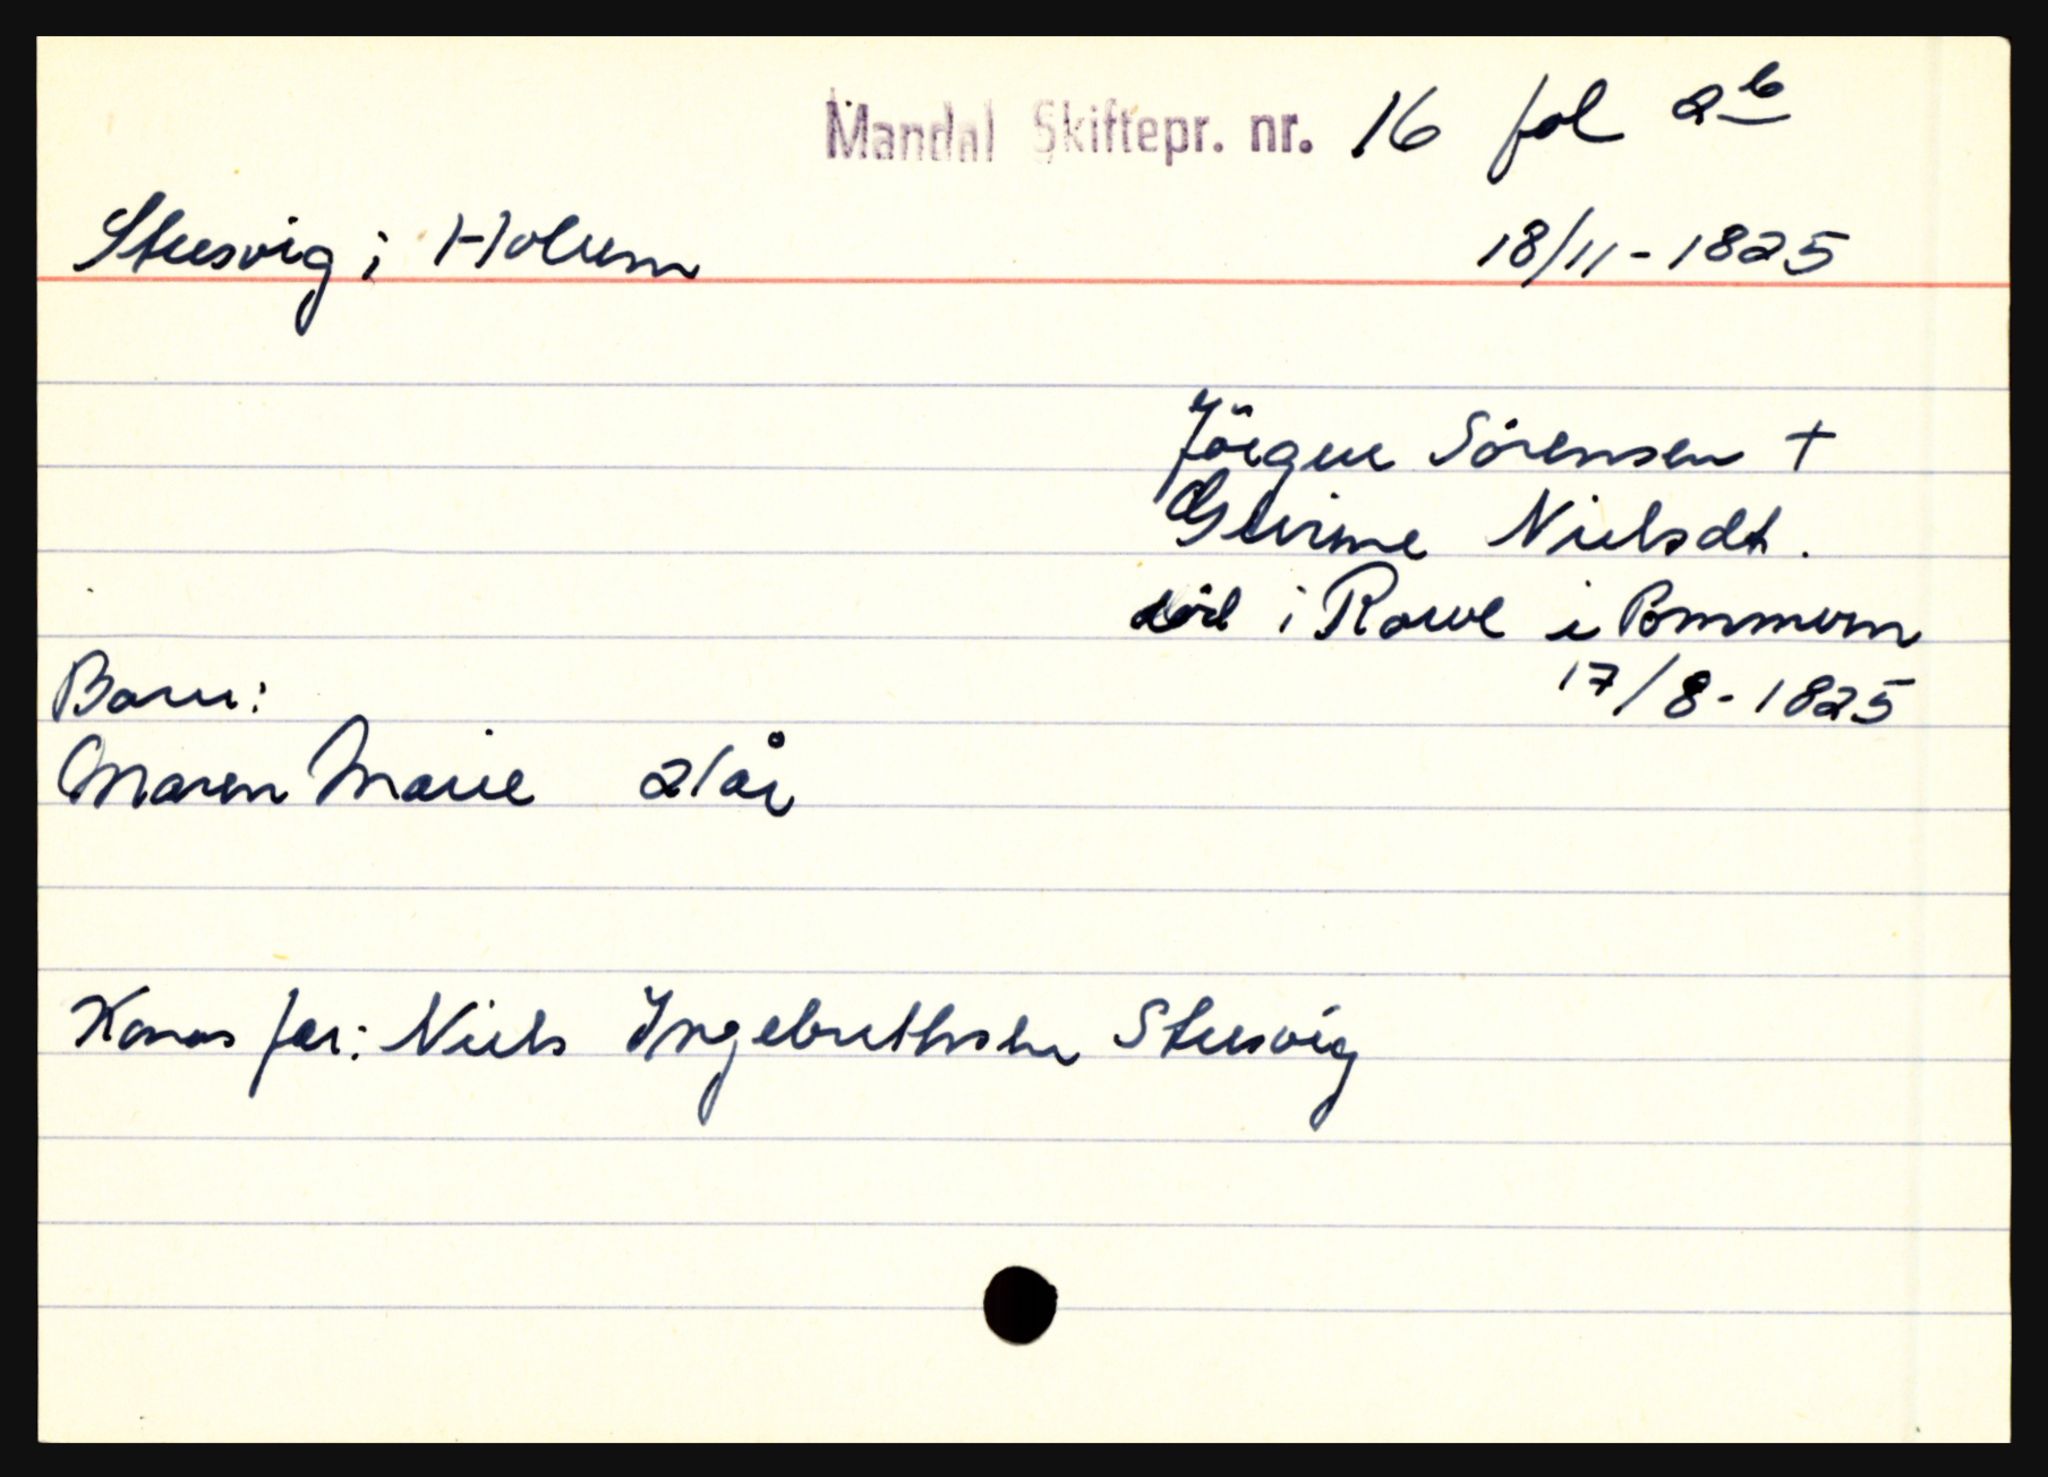 Mandal Skiftepr. nr. 16 fol 2b
Stusvig i Holum 18/11-1825
Jörgen Sörensen +
Nielsdt.
död i Rowe i Pommern
17/8-1825
Barn:
Maren Marie 21 år
Konas far: Niels Ingebrethsen Stusvig